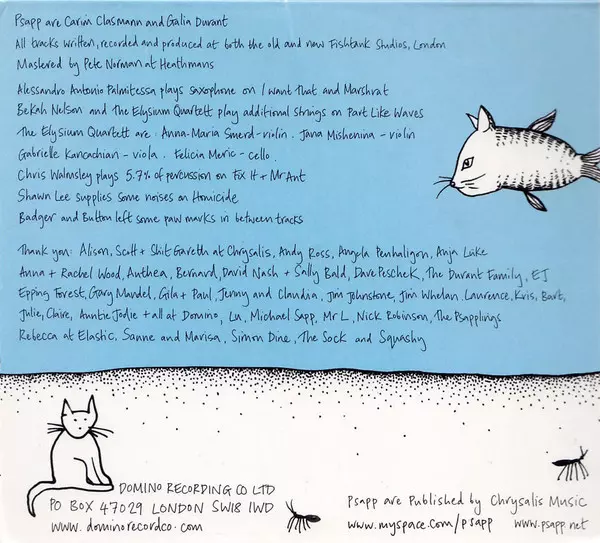 Psapp are Carim Clasmann and Galia Durant
All tracks written, recorded and produced at both the old and new Fishtank Studios, London
Mastered by Pete Norman at Heathmans
Alessandro Antonio Palmitessa plays saxophone on I want That and Marshrat
Bekah Nelson and The Elysium Quartett play additional strings on Part Like Waves
The Elysium Quartett are: Anna-Maria Smerd-violin. Jana Mishenina - violin
Gabrielle Kancachian - viola. Felicia Meric - cello.
Chris Walmsley plays 5.7% of percussion on Fix It + Mr Ant
Shawn Lee supplies some noises on Homicide
Badger and Button left some paw marks in between tracks
Thank you: Alison, Scott + Shit Gareth at Chrysalis, Andy Ross, Angela Penhaligon, Anja Lüke
Anna + Rachel Wood, Anthea, Bernard, David Nash + Sally Bald, Dave Peschek, The Durant Family, EJ
Epping Forest, Gary Mandel, Gila + Paul, Jenny and Claudia, Jim Johnstone, Jim Whelan, Laurence, Kris, Bart,
Julie, Claire, Auntie Jodie + all at Domino, Lu, Michael Sapp, Mr L, Nick Robinson, The Psapplings
Rebecca at Elastic, Sanne and Marisa, Simon Dine, The Sock and Squashy
DOMINO RECORDING CO LTD
PO BOX 47029 LONDON SW18 1WD
www.dominorecordco.com
Psapp are Published by Chrysalis Music
www.myspace.com/psapp www.psapp.net